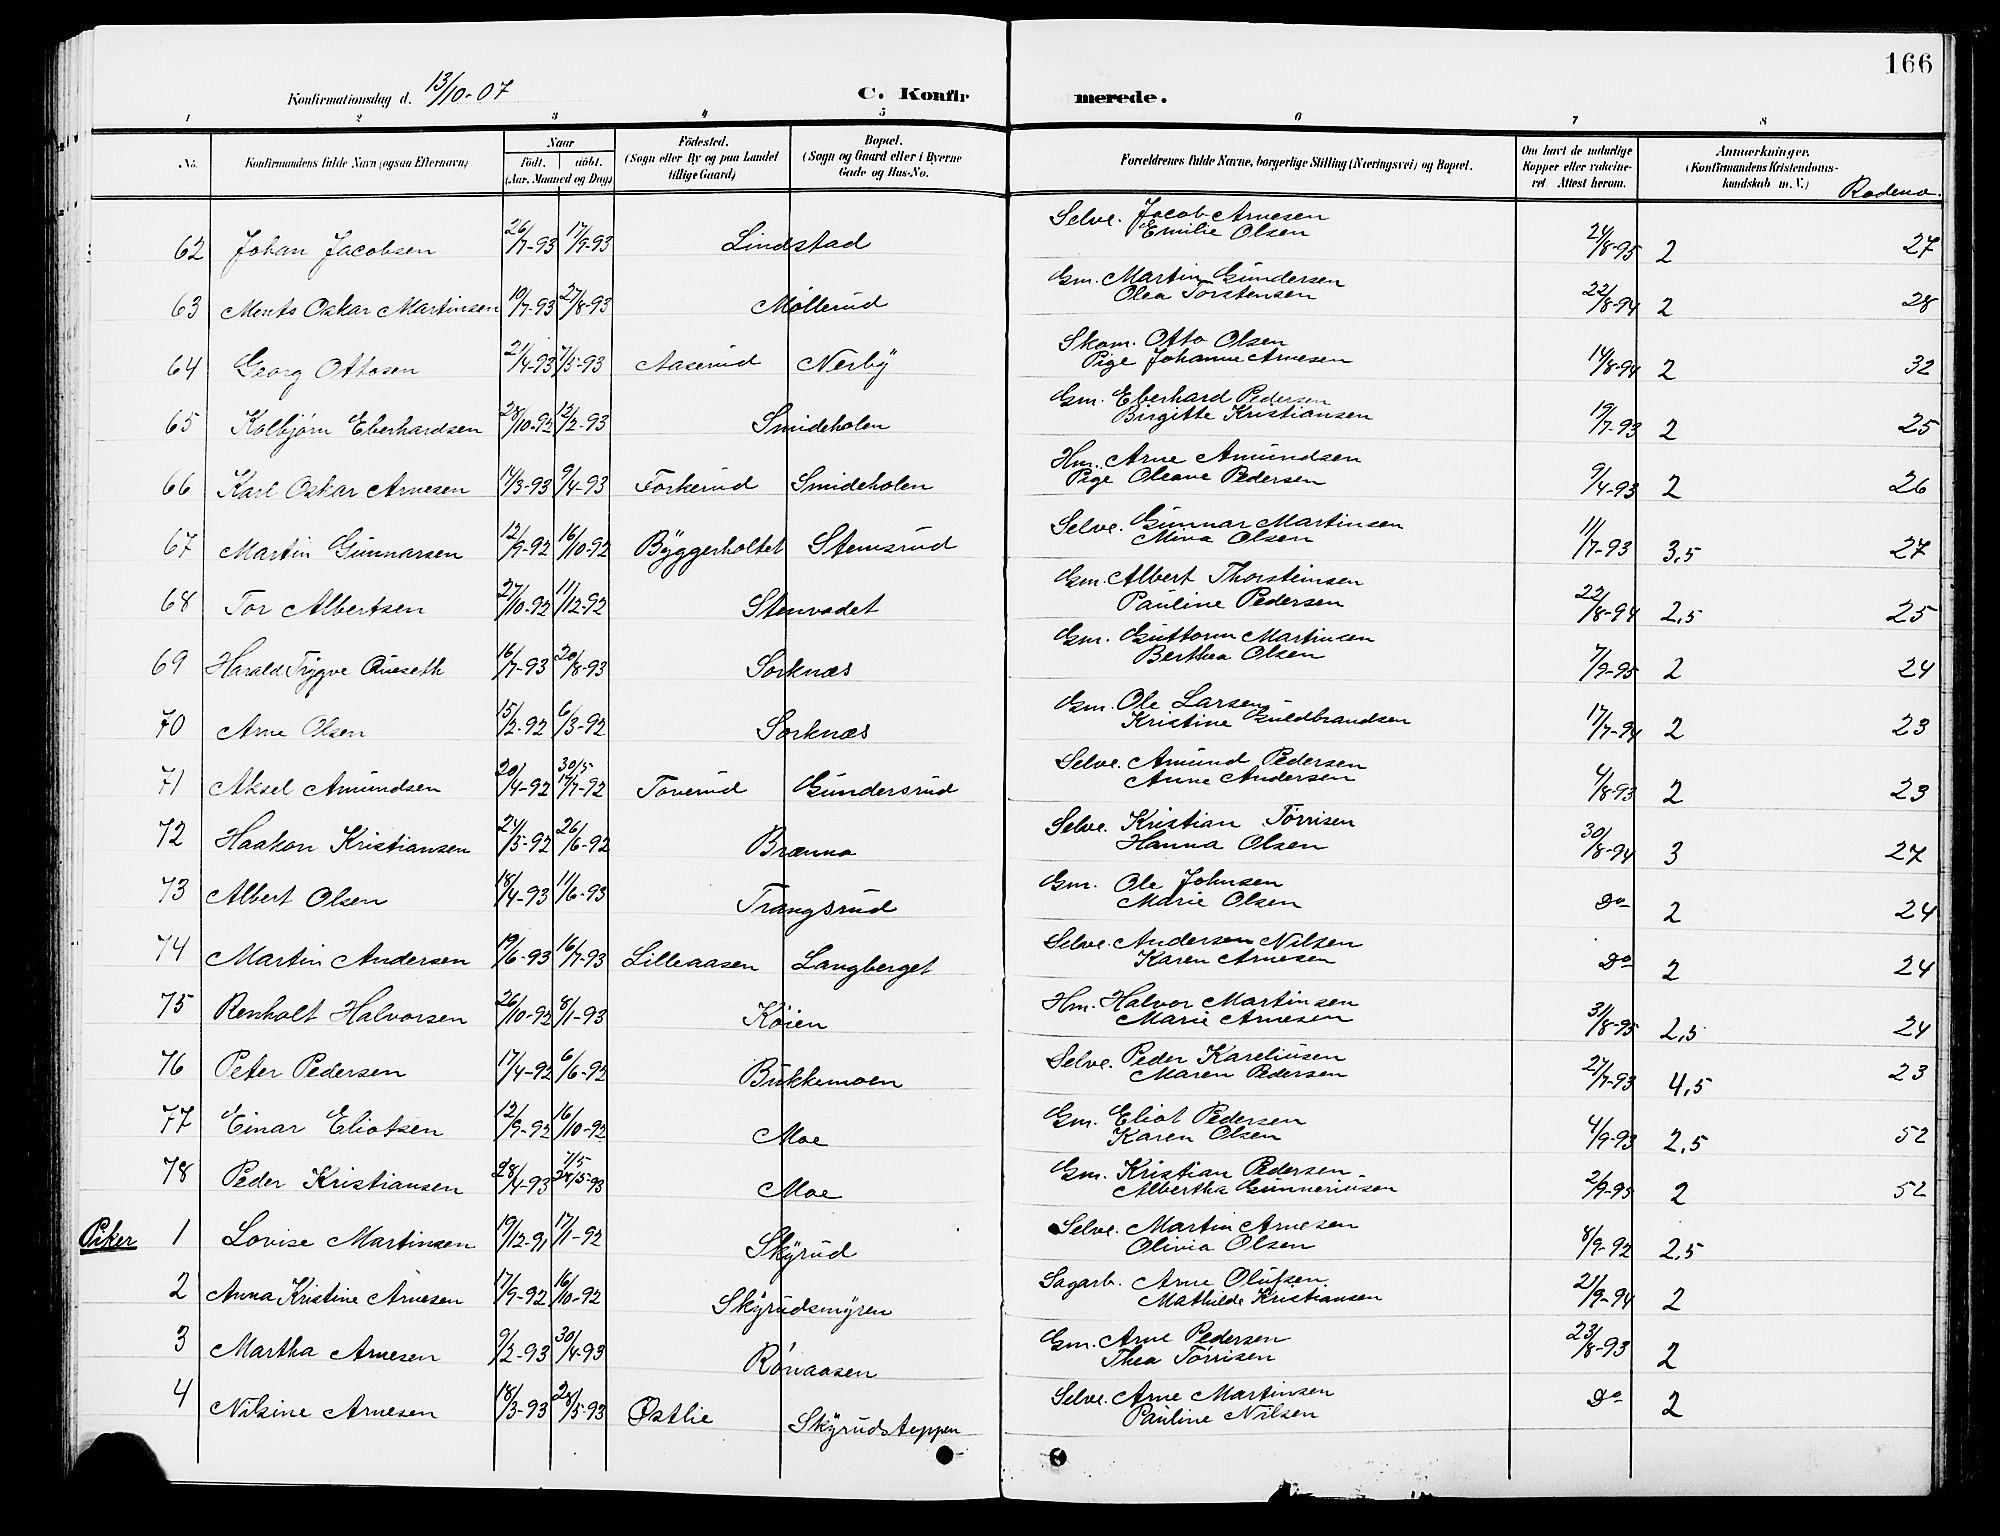 166
Konfirmationsdag d. 13/10-07 C. Konfirmerede.
1 2 3 4 5 6 7 8
No. Konfirmandens fulde Navn (ogsaa Efternavn) Naar født. døbt. (Aar, Maaned og Dag) Fødested. (Sogn eller By og paa Landet tillige Gaard) Bopæl. (Sogn og Gaard eller i Byerne Gade og Hus-No. Forældrenes fulde Navne, borgerlige Stilling (Næringsvei) og Bopæl. Om havt de naturlige Kopper eller vakcineret. Attest herom. Anmærkninger. (Konfirmandens Kristendomskundskab m. V.) Rodeno.
62 Johan Jacobsen 26/7-93 17/9-93 Lindstad Selve. Jacob Arnesen Emilie Olsen 24/8-95 2 27
63 Ments Oskar Martinsen 19/7-93 27/8-93 Møllerud Gm. Martin Gundersen Olea Torstensen 22/8-94 2 28
64 Georg Ottosen 21/4-93 7/5-93 Aaserud Nerby Skom. Otto Olsen Pige Johanne Arnesen 14/8-94 2 32
65 Kolbjørn Eberhardsen 28/10-92 12/2-93 Smideholen Gm. Eberhard Pedersen Birgitte Kristiansen 19/7-93 2 25
66 Karl Oskar Arnesen 14/3-93 9/4-93 Torkerud Smideholen Hm. Arne Amundsen Pige Oleane Pedersen 9/4-93 2 26
67 Martin Gunnarsen 12/9-92 16/10-92 Byggerholtet Stemsrud Selve. Gunnar Martinsen Mina Olsen 11/7-93 3,5 27
68 Tor Albertsen 27/10-92 11/12-92 Stenvadet Gm. Albert Thorsteinsen Pauline Pedersen 22/8-94 2,5 25
69 Harald Trygve Qveseth 16/7-93 20/8-93 Sorknæs Gm. Guttorm Martinsen Berthea Olsen 7/9-95 2 24
70 Arne Olsen 15/2-92 6/3-92 Sorknæs Gm. Ole Larsen Kristine Guldbrandsen 17/7-94 2 23
71 Aksel Amundsen 20/4-92 30/5 17/7-92 Toverud Gundersrud Selve. Amund Pedersen Anne Andersen 4/8-93 2 23
72 Haakon Kristiansen 24/5-92 26/6-92 Brænna Selve. Kristian Tørrisen Hanna Olsen 30/8-94 3 27
73 Albert Olsen 18/4-93 11/6-93 Trangsrud Gm. Ole Johnsen Marie Olsen Do 2 24
74 Martin Andersen 19/6-93 16/7-93 Lilleaasen Langberget Selve. Andersen Nilsen Karen Arnesen Do 2 24
75 Renholt Halvorsen 26/10-92 8/1-93 Køien Hm. Halvor Martinsen Marie Arnesen 31/8-95 2,5 24
76 Peter Pedersen 17/4-92 6/6-92 Bukkemoen Selve. Peder Kareliusen Maren Pedersen 27/7-93 4,5 23
77 Einar Eliotsen 12/9-92 16/10-92 Moe Gm. Eliot Pedersen Karen Olsen 4/9-93 2,5 52
78 Peder Kristiansen 28/4-93 7/5 24/5-93 Moe Gm. Kristian Pedersen Albertha Gunneriusen 2/9-95 2 52
Piker 1 Lovise Martinsen 19/12-91 17/1-92 Skyrud Selve. Martin Arnesen Olivia Olsen 8/9-92 2,5
2 Anna Kristine Arnesen 17/9-92 16/10-92 Skyrudsmyren Sagarb. Arne Olufsen Mathilde Kristiansen 21/9-94 2
3 Martha Arnesen 9/2-93 30/4-93 Rønaasen Gm. Arne Pedersen Thea Tørrisen 23/8-93 2
4 Nilsine Arnesen 18/3-93 28/5-93 Østlie Skyrudsteppen Selve. Arne Martinsen Pauline Nilsen Do 2